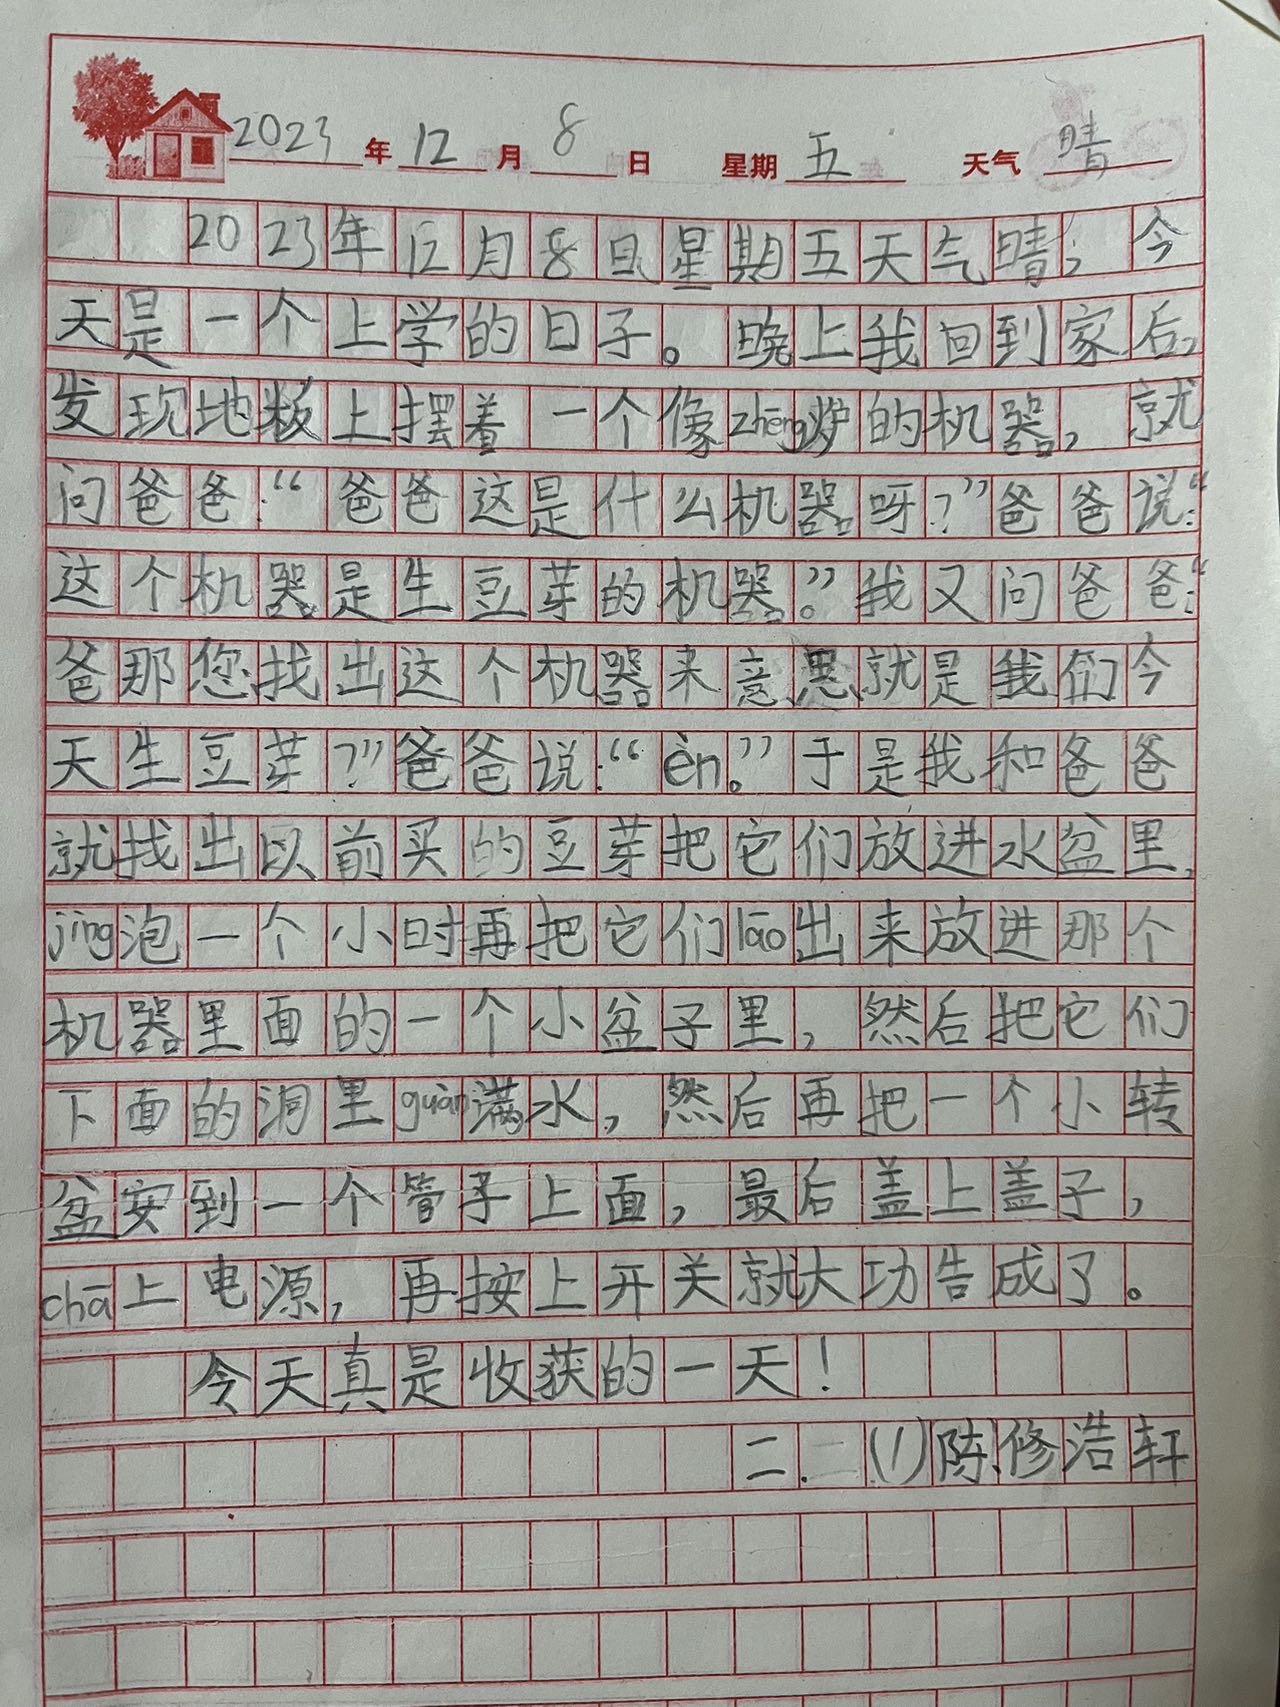 2023年12月8日 星期五 天气晴
2023年12月8日星期五天气晴,今
天是一个上学的日子。晚上我回到家后,
发现地板上摆着一个像zhēng炉的机器,就
问爸爸:“爸爸这是什么机器呀?”爸爸说:“
这个机器是生豆芽的机器。”我又问爸爸:“
爸那您找出这个机器来意思就是我们今
天生豆芽?”爸爸说:“èn。”于是我和爸爸
就找出以前买的豆芽把它们放进水盆里,
jìng泡一个小时再把它们lāo出来放进那个
机器里面的一个小盆子里,然后把它们
下面的洞里guàn满水,然后再把一个小转
盆安到一个管子上面,最后盖上盖子,
chā上电源,再按上开关就大功告成了。
今天真是收获的一天!
二.(1)陈修浩轩